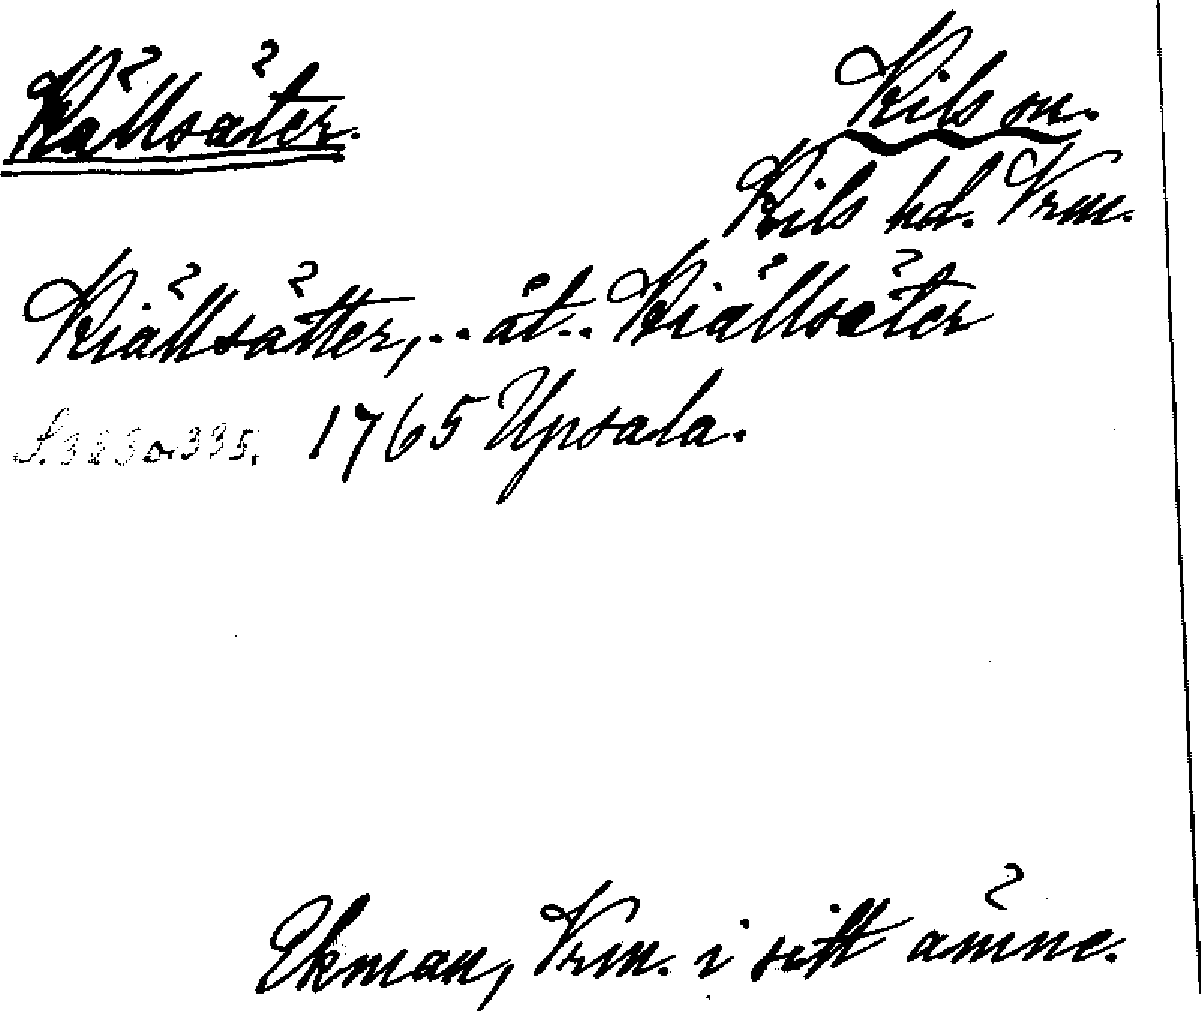 Källsäter.
Kils sn.
Kils hd. Vrm.
Kiällsätter, .. åt .. Kiällsäter
S. 323 o. 335. 1765 Upsala.
Ekman, Vrm. i sitt ämne.